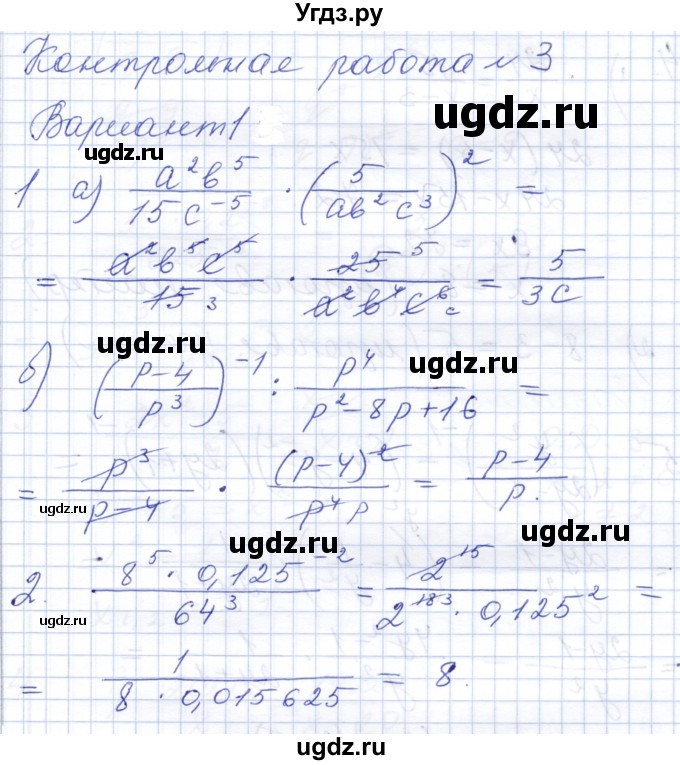 Угдз.ру
Контрольная работа №3
Вариант 1
ugdz.ru ugdz.ru
1 а) a²b⁵/(15c⁻⁵) · (5/(ab²c³))² =
= a²b⁵c⁵/(15 3) · 25 5/(a²b⁴c⁶ c) = 5/(3c)
ugdz.ru ugdz.ru
б) ((p-4)/p³)⁻¹ : p⁴/(p²-8p+16) =
= p³/(p-4) · (p-4)²/(p⁴ p) = (p-4)/p.
ugdz.ru ugdz.ru
ugdz.ru
2. 8⁵ · 0,125⁻²/64³ = 2¹⁵/(2¹⁸ ³ · 0,125²) =
ugdz.ru ugdz.ru
= 1/(8 · 0,015625) = 8.
ugdz.ru
ugdz.ru